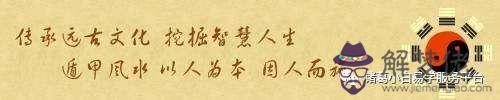 传承远古文化 挖掘智慧人生
遁甲风水 以人为本 因人而
解梦佬
www.jiemenglao.com
诸葛小白易学服务平台